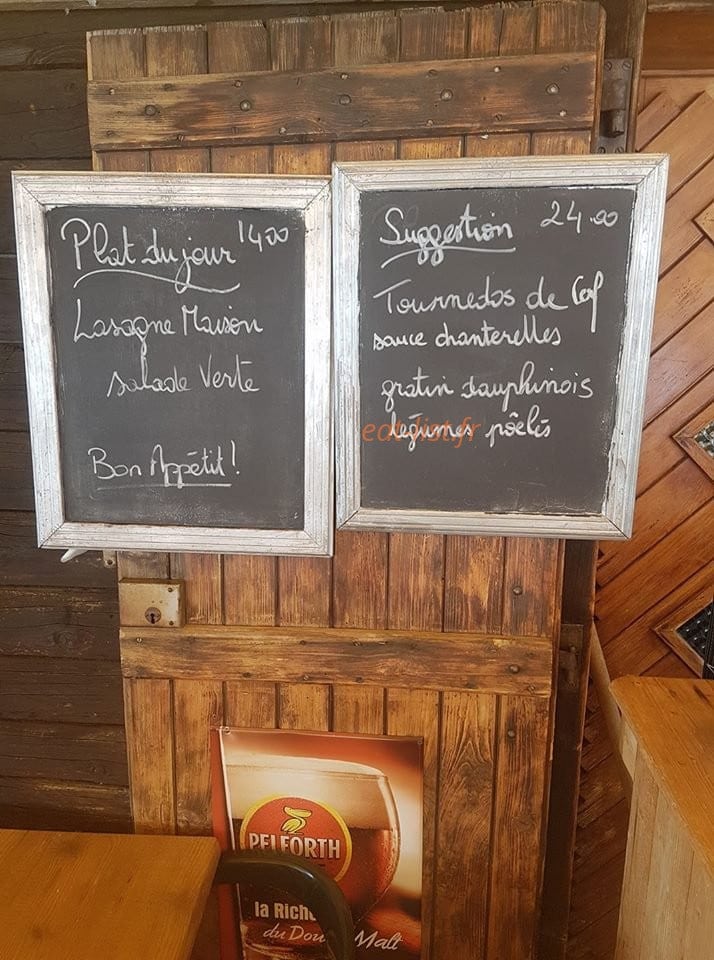 Plat du jour 14 00
Lasagne Maison
salade Verte
Bon Appétit!
Suggestion 24.00
Tournedos de
sauce chanterelles
gratin dauphinois
légumes poêlés
eat-list.fr
PELFORTH
la Riche
du Dou Malt